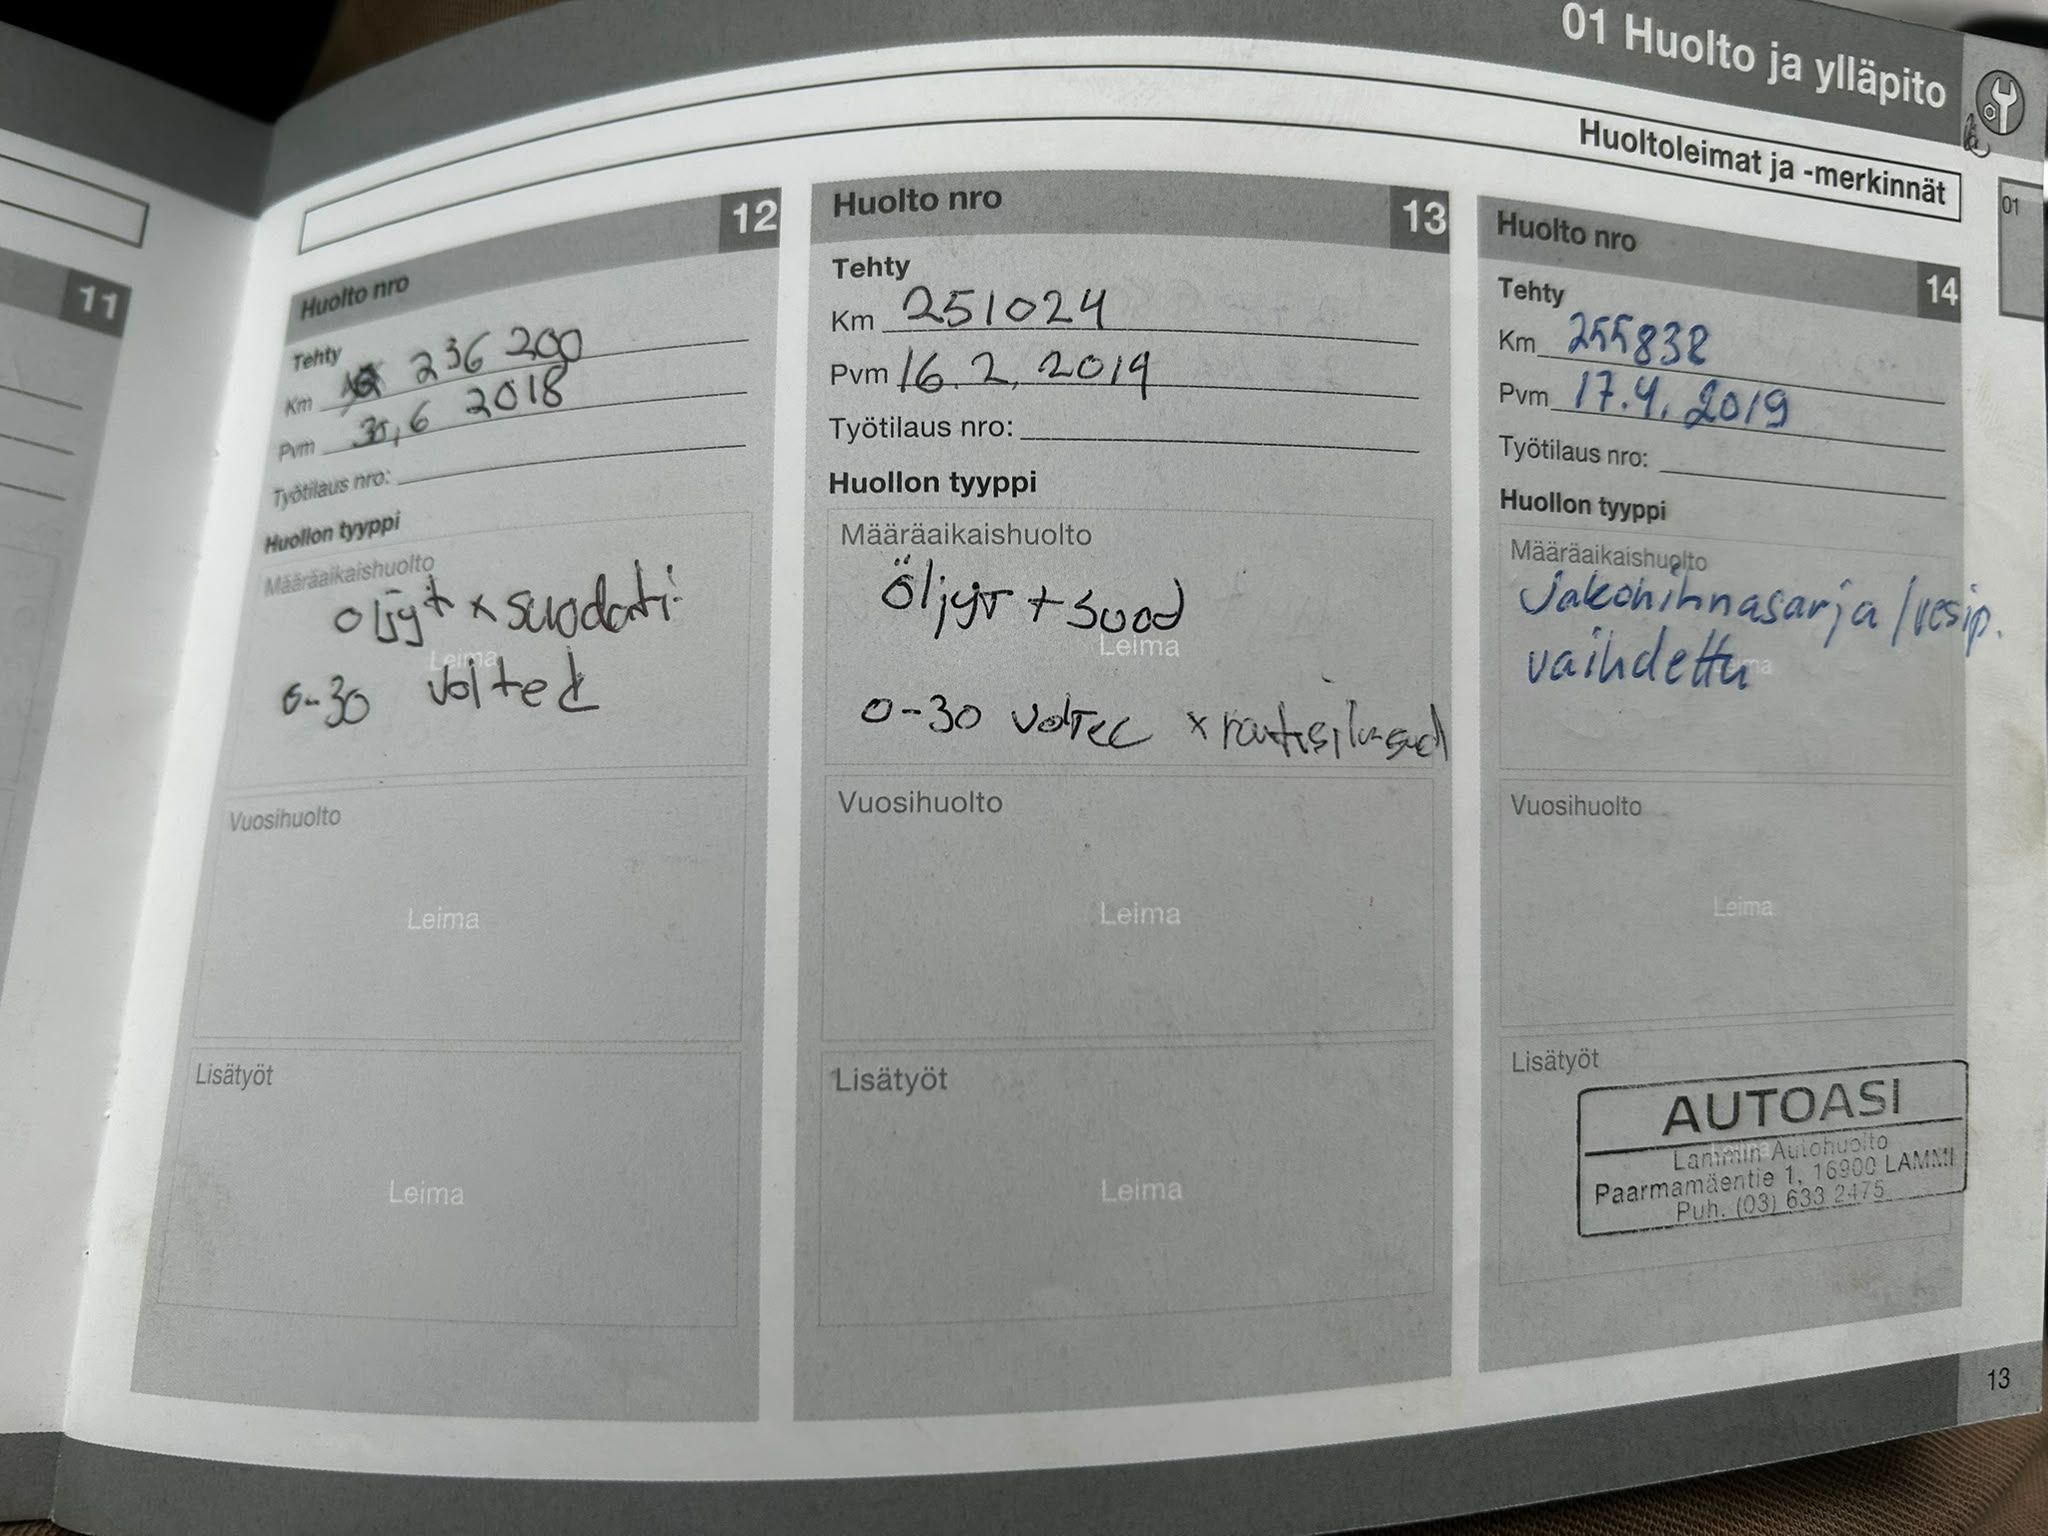 01 Huolto ja ylläpito
Huoltoleimat ja -merkinnät
01
11
12
Huolto nro
Tehty
Km 236 200
Pvm 30,6 2018
Työtilaus nro:
Huollon tyyppi
Määräaikaishuolto
öljyt x suodati
Leima
0-30 Voltec
Vuosihuolto
Leima
Lisätyöt
Leima
Huolto nro 13
Tehty
Km 251024
Pvm 16.2.2019
Työtilaus nro:
Huollon tyyppi
Määräaikaishuolto
Öljyt + suod
Leima
0-30 Voltec x
Vuosihuolto
Leima
Lisätyöt
Leima
Huolto nro
14
Tehty
Km 255838
Pvm 17.4.2019
Työtilaus nro:
Huollon tyyppi
Määräaikaishuolto
Jakohihnasarja/vesip.
vaihdettu
Vuosihuolto
Leima
Lisätyöt
AUTOASI
Lammin Autohuolto
Paarmamäentie 1, 16900 LAMMI
Puh. (03) 633 2475
13